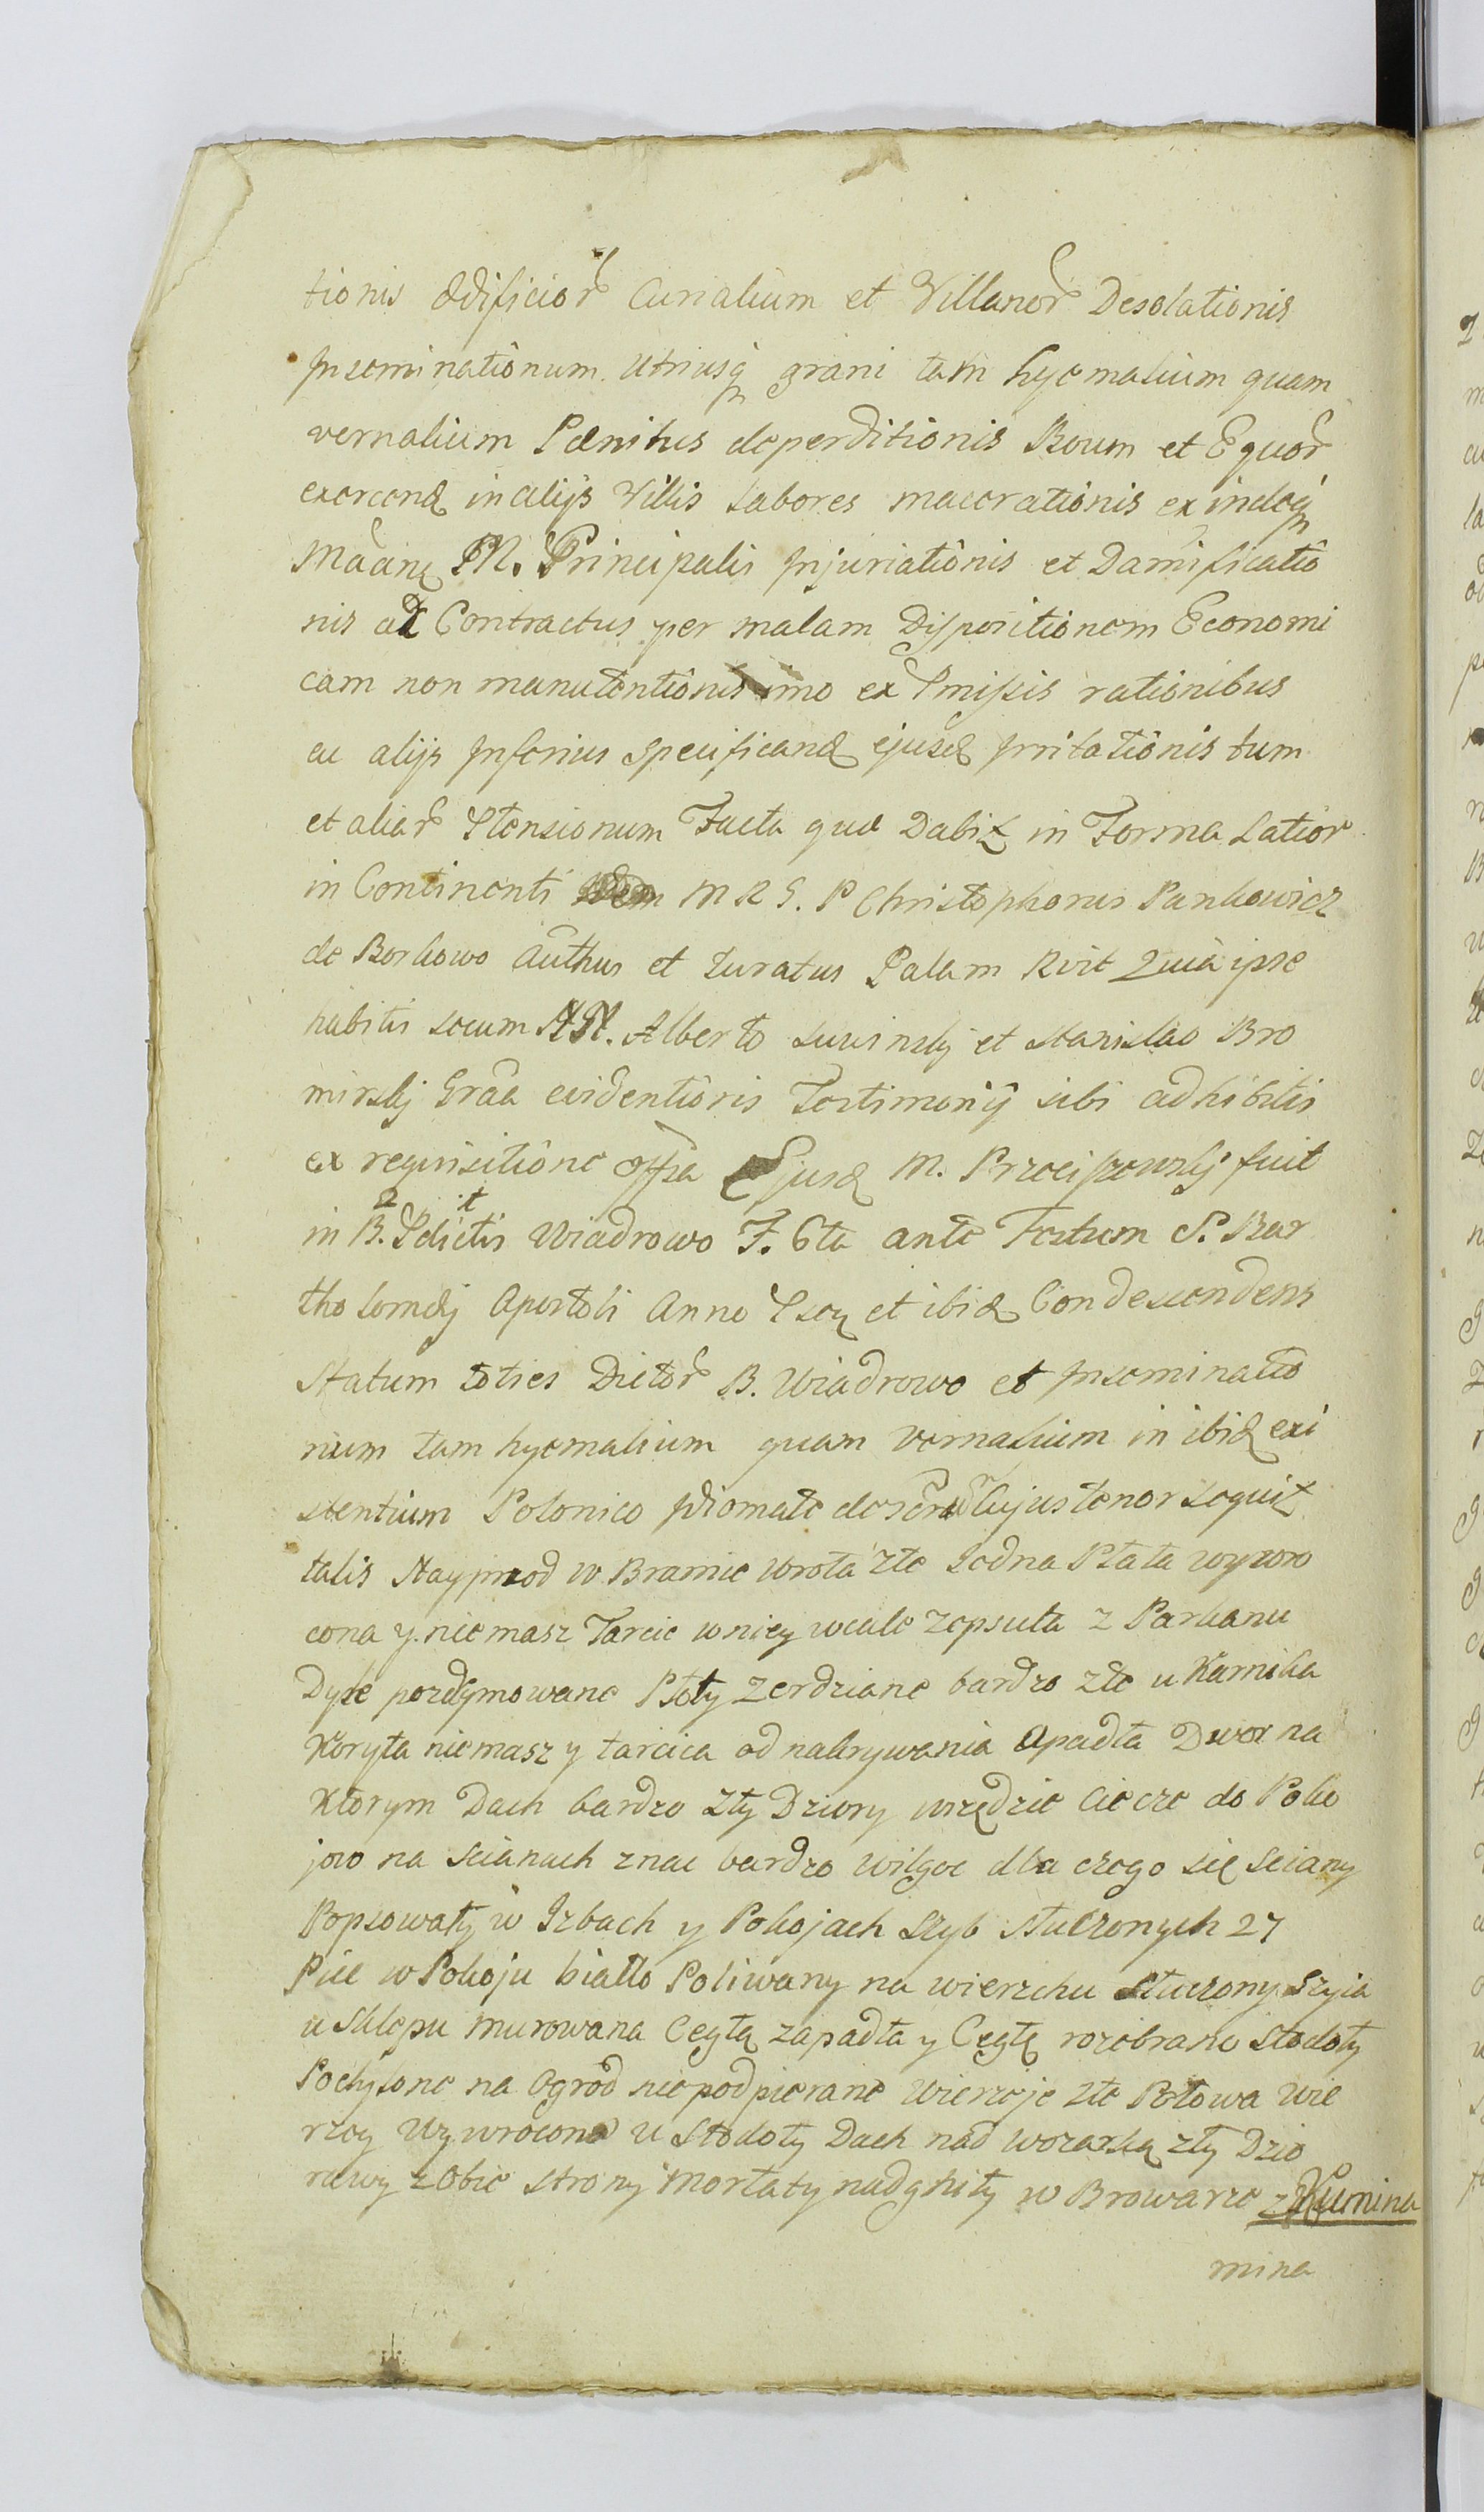 tionis ædificior Curialium et Villanor Desolationis
Inseminationum utriusq grani tam hyemalium quam
vernalium Pænitus deperditionis Boum et Equor
exercend in alijs Villis Labores macerationis exindeq
M. Principalis Injuriationis et Damificatio
nis ac Contractus per malam Dispositionem Economi
cam non manutentionis imo ex Pmissis rationibus
ac alijs Inferius Specificand ejusd Irritationis tum
et aliar Ptensionum Facta qua Dabit in Forma Latior
in Continenti Idem M R G. P Christophorus Pankowicz
de Borkowo Authus et Juratus Palam Rvit Quia ipse
habitis secum NN. Alberto et Stanislao Bro
mirskj Graa evidentioris Testimonij sibi adhibitis
ex requisitione offsa Ejusd M. Przeciszewskj fuit
in B. Pdictis Wiadrowo F. 6ta ante Festum S. Bar
tholomæj Apostoli Anno Psen et ibid Condescendens
Statum toties Dictor B. Wiadrowo et Inseminatio
num tam hyemalium quam vernalium in ibid exi
stentium Polonico Idiomate Cujus tenor sequit
talis Nayprzod w Bramie wrota złe Jedna Płata wywro
cona y niemasz Tarcic w niey wcale zepsuta z Parkanu
Dyle pozdymowane Płoty Zerdziane bardzo złe u Karnika
Koryta niemasz y tarcica od nakrywania Opadła Dwor na
Ktorym Dach bardzo zły Dziury wszędzie Ciecze do Poko
jow na Scianach znac bardzo wilgoc dla czego się Sciany
Popsowały w Izbach y Pokojach Szyb stuczonych 27
Piec w Pokoju biało Poliwany na wierzchu stuczony Szyia
u Sklepu murowana Cegłą zapadła y Cegłę rozebrano Stodoły
Pochylone na Ogrod nie podpierane Wierzeje złe Połowa Wie
rzey Wywrocona u Stodoły Dach nad wozarką zły Dzio
rawy z Obie strony Morłaty nadgniły w Browarze z Kumina
mina